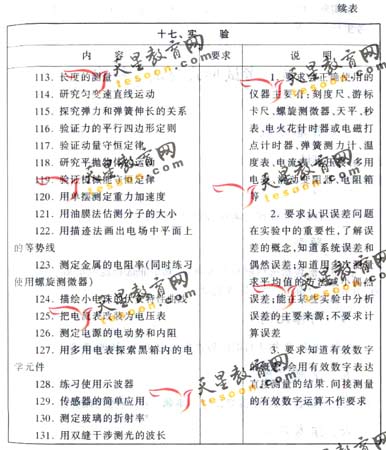 续表
十七、实 验
内 容 要求 说 明
113. 长度的测量
114. 研究匀变速直线运动
115. 探究弹力和弹簧伸长的关系
116. 验证力的平行四边形定则
117. 验证动量守恒定律
118. 研究平抛物体的运动
119. 验证机械能守恒定律
120. 用单摆测定重力加速度
121. 用油膜法估测分子的大小
122. 用描迹法画出电场中平面上
的等势线
123. 测定金属的电阻率(同时练习
使用螺旋测微器)
124. 描绘小电珠的伏安特性曲线
125. 把电流表改装为电压表
126. 测定电源的电动势和内阻
127. 用多用电表探索黑箱内的电
学元件
128. 练习使用示波器
129. 传感器的简单应用
130. 测定玻璃的折射率
131. 用双缝干涉测光的波长
1. 要求会正确使用的
仪器主要有:刻度尺、游标
卡尺、螺旋测微器、天平、秒
表、电火花计时器或电磁打
点计时器、弹簧测力计、温
度表、电流表、电压表、多用
电表、滑动变阻器、电阻箱
等
2. 要求认识误差问题
在实验中的重要性,了解误
差的概念,知道系统误差和
偶然误差;知道用多次测量
求平均值的方法减小偶然
误差;能在某些实验中分析
误差的主要来源;不要求计
算误差
3. 要求知道有效数字
的概念,会用有效数字表达
直接测量的结果.间接测量
的有效数字运算不作要求
天星教育网
tesoon.com
天星教育网
tesoon.com
天星教育网
tesoon.com
天星教育网
tesoon.com
天星教育网
tesoon.com